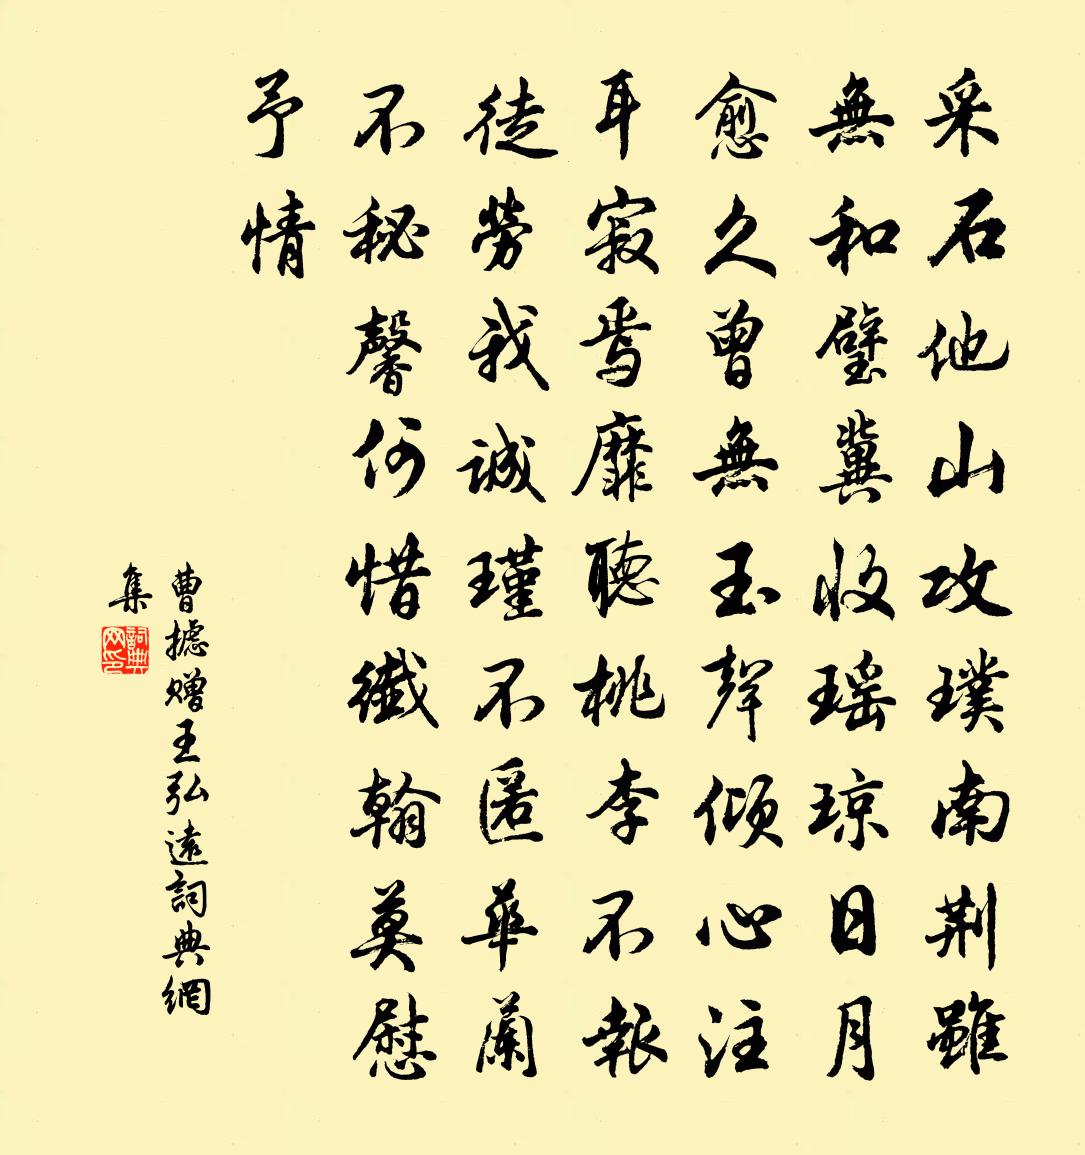 采石他山攻璞南荆雖
無和璧冀收瑶琼日月
愈久曾無玉聲倾心注
耳寂焉靡聴桃李不報
徒勞我誠瑾不匿華蘭
不秘馨何惜纖翰莫慰
予情
曹摅赠王弘遠詞典網
集
詞典
网印